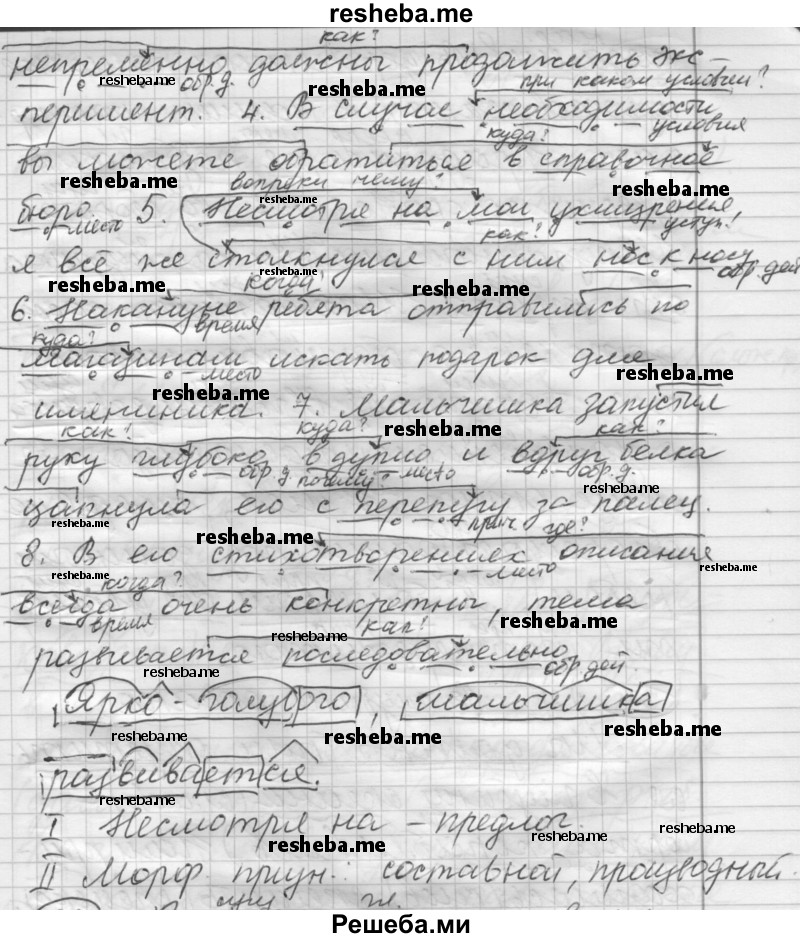 resheba.me
как?
непременно должны продолжить экс-
обр.д. при каком условии?
перимент. 4. В случае необходимости
куда? условия
вы можете обратиться в справочное
вопреки чему?
бюро. 5. Несмотря на мои ухищрения,
место как? уступ.
я всё же столкнулся с ним нос к носу
когда? обр.дей
6. Накануне ребята отправились по
куда? время
магазинам искать подарок для
место
именинника. 7. Мальчишка запустил
как? куда? как?
руку глубоко в дупло и вдруг белка
обр.д. почему? место обр.д.
цапнула его с перепугу за палец.
прич где?
8. В его стихотворениях описания
когда? место
всегда очень конкретны, тема
время как?
развивается последовательно.
обр.дей.
Ярко-голубого, мальчишка
развивается.
I Несмотря на – предлог.
II Морф призн.: составной, производный.
Решеба.ми